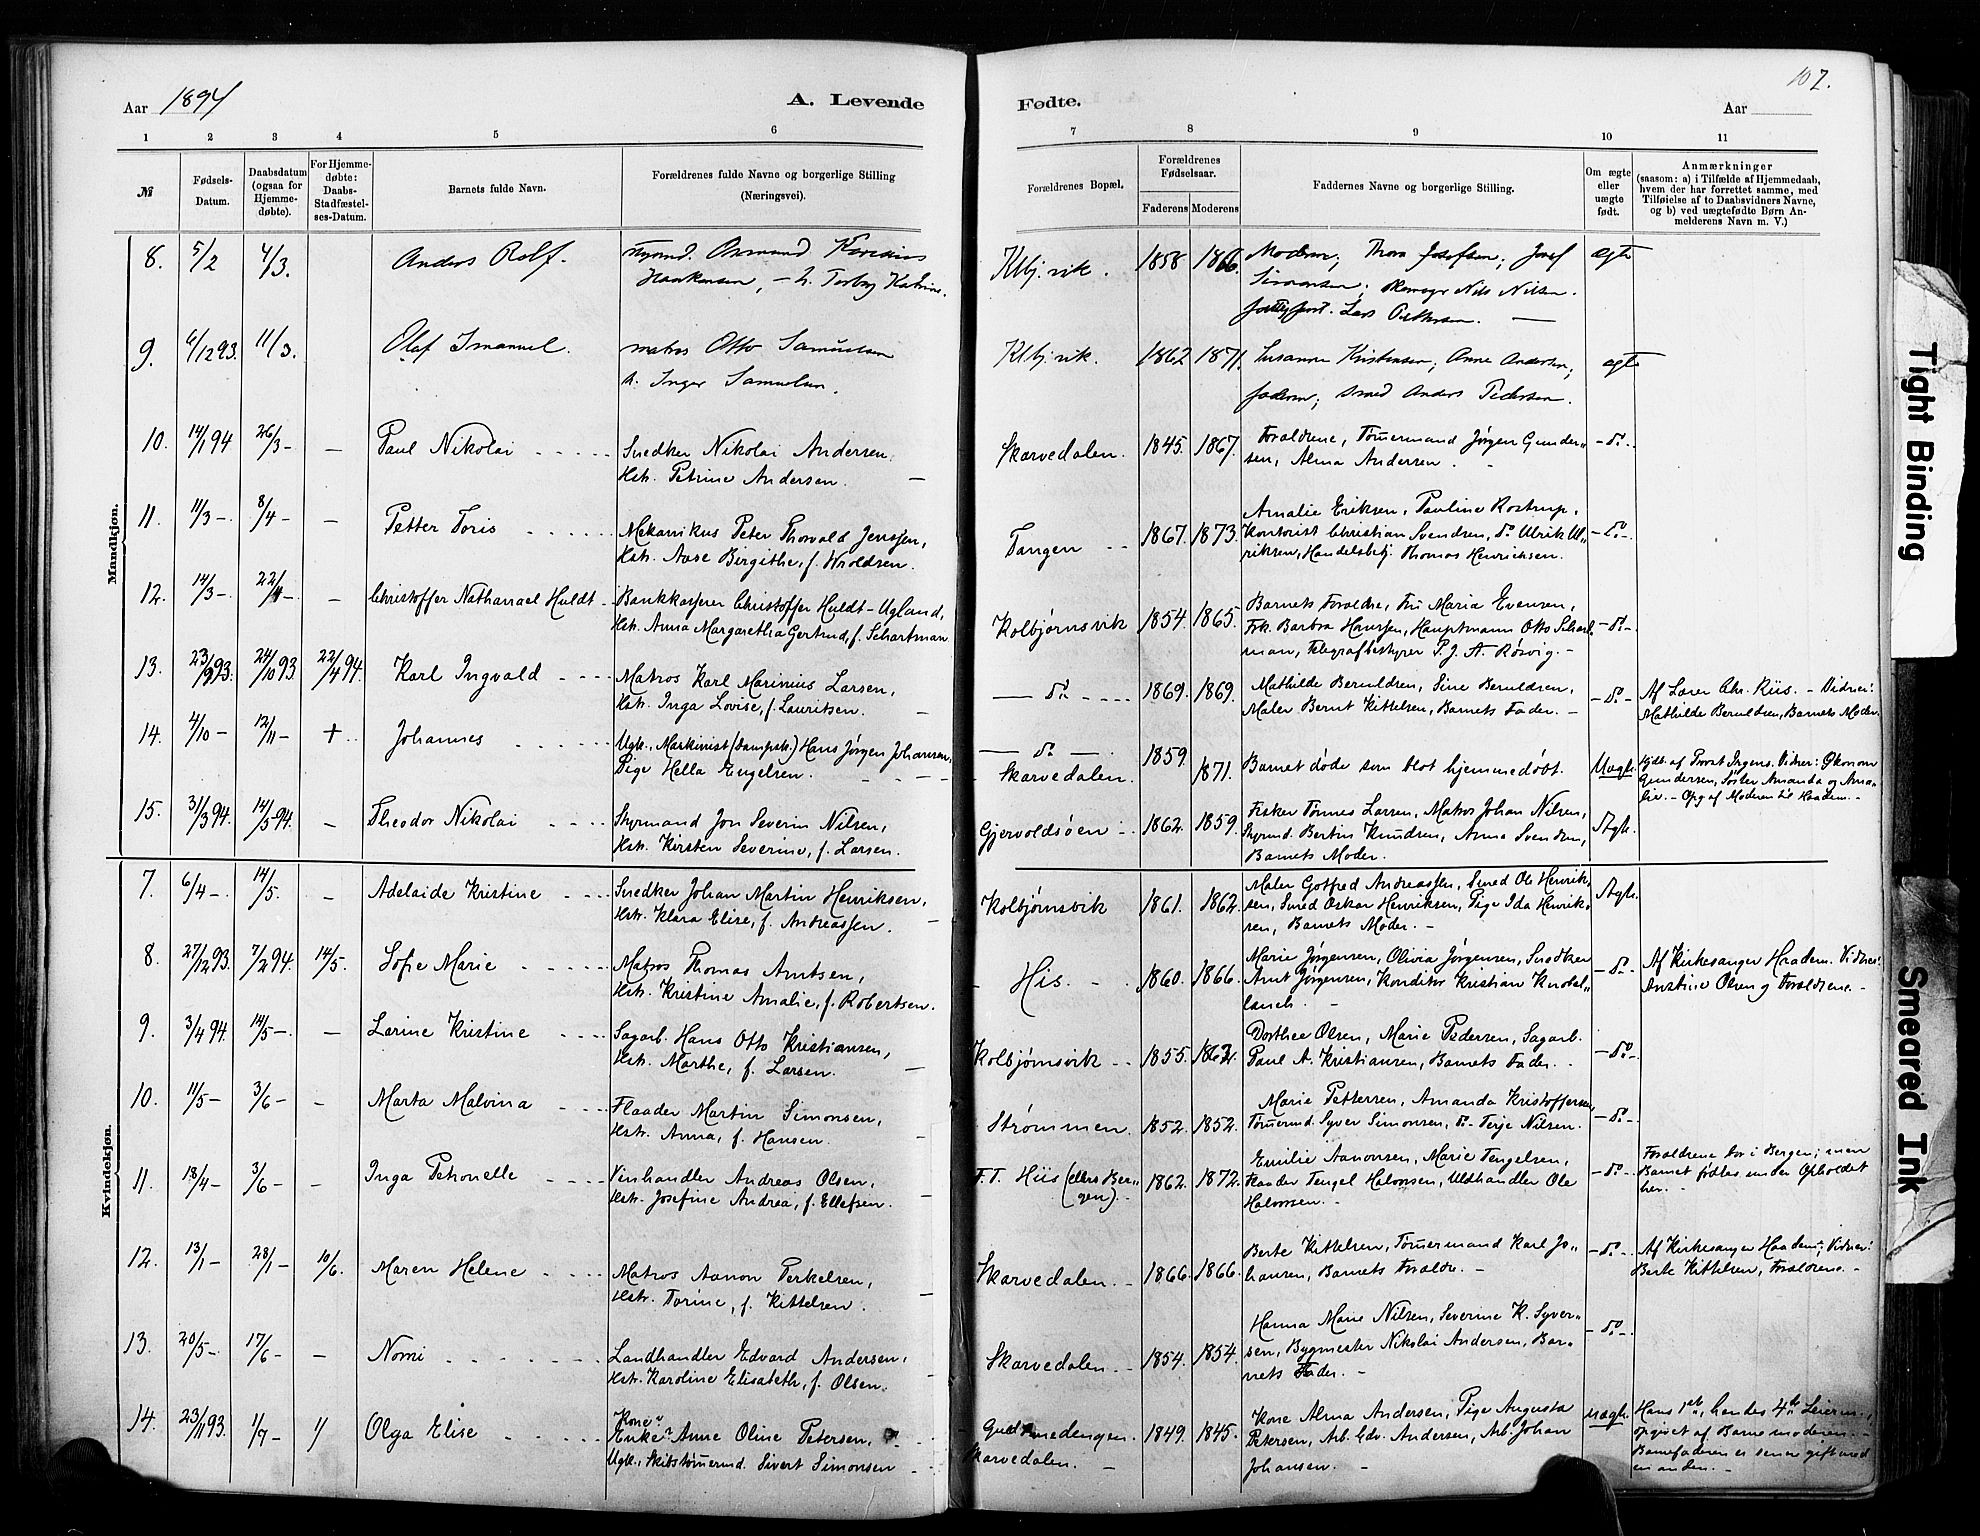 Aar 1894
A. Levende
Fødte.
Aar
107.
1 2 3 4 5 6
7 8 9 10 11
№
Fødsels-
Datum.
Daabsdatum
(ogsaa for
Hjemme-
døbte).
For Hjemme-
døbte:
Daabs-
Stadfæstel-
ses-Datum.
Barnets fulde Navn.
Forældrenes fulde Navne og borgerlige Stilling
(Næringsvei).
Forældrenes Bopæl.
Forældrenes
Fødselsaar.
Faderens Moderens
Faddernes Navne og borgerlige Stilling.
Om ægte
eller
uægte
født.
Anmærkninger
(saasom: a) i Tilfælde af Hjemmedaab,
hvem der har forrettet samme, med
Tilføielse af to Daabsvidners Navne,
og b) ved uægtefødte Børn An-
melderens Navn m. V.)
Mandkjøn.
8. 5/2 4/3. Anders Rolf.
Klbj.vik. 1858 1866.
Simonsen; Nils Nilsen.
ægte
9. 6/12 93. 11/3. Olaf Imanuel. matros Otto Samuelsen
h. Inger Samuelsen.
Klbj.vik. 1862 1871. Susanne Kristensen; Anne Andersen;
faderen; smed Anders Pedersen.
ægte
10. 14/1 94 26/3 - - Paul Nikolai Snedker Nikolai Andersen.
Hstr. Petrine Andersen.
Skarvedalen. 1845. 1867. Forældrene, Tømermand Jørgen Gunder-
sen, Alma Andersen. - do -
11. 11/3 - 8/4 - - Petter Toris Mekanikus Peter Thorvald Jenssen,
Hstr. Aase Birgithe, f. Wroldsen.
Tangen 1867. 1873. Amalie Eriksen, Pauline Rostrup,
Kontorist Christian Svendsen, do Ulrik Ul-
riksen, Handelsbetj. Thomas Henriksen. - do -
12. 14/3 - 22/4 - - Christoffer Nathanael Huldt Bankkasserer Christoffer Huldt-Ugland,
Hstr. Anna Margaretha Gertrud, f. Schartman
Kolbjørnsvik 1854. 1865. Barnets Forældre, Fru Maria Evensen,
Frk. Barbra Hanssen, Hauptmann Otto Schart-
man, Telegrafbestyrer P. J. A. Røsvig. - - do -
13. 23/9 93. 24/10 93 22/4 94. Karl Ingvald Matros Karl Marinius Larsen,
Hstr. Inga Lovise, f. Lauritsen.
- do - 1869. 1869. Mathilde Beruldsen, Sine Beruldsen,
Maler Bernt Kittelsen, Barnets Fader. - - do -
Af Lærer Chr. Riis. - Vidner:
Mathilde Beruldsen, Barnets Moder.
14. 4/10 - 12/11 - + Johannes Ugk., Maskinist (Dampsk.) Hans Jørgen Johansen,
Pige Hella Engelsen.
- do -
Skarvedalen. 1859. 1871. Barnet døde som blot hjemmedøbt. Uægte.
Hjdt. af Provst Irgens. Vidner: Økonom
Gundersen, Søster Amanda og Ama-
lie. - Opg. af Moderen til Haadem. -
15. 31/3 94. 14/5 94. - Theodor Nikolai Styrmand Jon Severin Nilsen,
Hstr. Kirsten Severine, f. Larsen.
Gjervoldsøen 1862. 1859. Fisker Tønnes Larsen, Matros Johan Nilsen,
Styrmd. Bertin Knudsen, Anna Svendsen,
Barnets Moder. Ægte.
Kvindekjøn.
7. 6/4 - 14/5. - Adelaide Kristine Snedker Johan Martin Henriksen,
Hstr. Klara Elise, f. Andreassen.
Kolbjørnsvik 1861. 1862. Maler Gotfred Andreassen, Smed Ole Henrik-
sen, Smed Oskar Henriksen, Pige Ida Henrik-
sen, Barnets Moder. - Ægte.
8. 27/12 93. 7/2 94. 14/5. Sofie Marie Matros Thomas Arntsen,
Hstr. Kristine Amalie, f. Robertsen.
His. 1860. 1866. Marie Jørgensen, Olivia Jørgensen, Snedker
Arnt Jørgensen, Konditor Kristian
- do -
Af Kirkesanger Haadem. Vidner:
Olsen og Forældrene. -
9. 3/4 94. 14/5 -. - Larine Kristine Sagarb. Hans Otto Kristiansen,
Hstr. Marthe, f. Larsen.
Kolbjørnsvik 1855. 1862. Dorthea Olsen, Marie Pedersen, Sagarb.
Paul A. Kristiansen, Barnets Fader. - do -
10. 11/5 - 3/6 - - Marta Malvina Flaader Martin Simonsen,
Hstr. Anna, f. Hansen.
Strømmen. 1852. 1852. Marie Pettersen, Amanda Kristoffersen,
Tømermd. Syver Simonsen, do - Terje Nilsen. - do -
11. 18/4 - 3/6 - - Inga Petronelle Vinhandler Andreas Olsen,
Hstr. Josefine Andrea, f. Ellefsen.
F.T. Hiis (ellers Ber-
gen). 1862. 1872. Emilie Aanonsen, Marie Tengelsen,
Flaader Tengel Halvorsen, Uldhandler Ole
Halvorsen. - - do -
Forældrene bor i Bergen; men
Barnet fødtes under Opholdet
her.
12. 13/1 - 28/1 - 10/6. Maren Helene Matros Aanon Terkelsen,
Hstr. Torine, f. Kittelsen.
Skarvedalen. 1866. 1866. Berte Kittelsen, Tømermand Karl Jo-
hansen, Barnets Forældre. - - do -
Af Kirkesanger Haadem; Vidner:
Berte Kittelsen, Forældrene. -
13. 20/5 - 17/6 - - Nomi Landhandler Edvard Andersen,
Hstr. Karoline Elisabeth, f. Olsen.
Skarvedalen 1854. 1854. Hanna Marie Nilsen, Severine K. Syver-
sen, Bygmester Nikolai Andersen, Bar-
nets Fader. - - do -
14. 23/11 93. 1/7 - Olga Elise Kone
Enke Anne Oline Petersen,
Ugk., Skibstømermd. Sivert Simonsen
Skarvedalen. 1849. 1845. Kone Alma Andersen, Pige Augusta
Petersen, Arb. Edv. Andersen, Arb. Johan
Johansen. - uægte.
Hans 1ste, hendes 4de Leierm.,
opgivet af Barnemoderen. -
Barnefaderen er senere gift med
en anden. -
Tight Binding
Smeared Ink